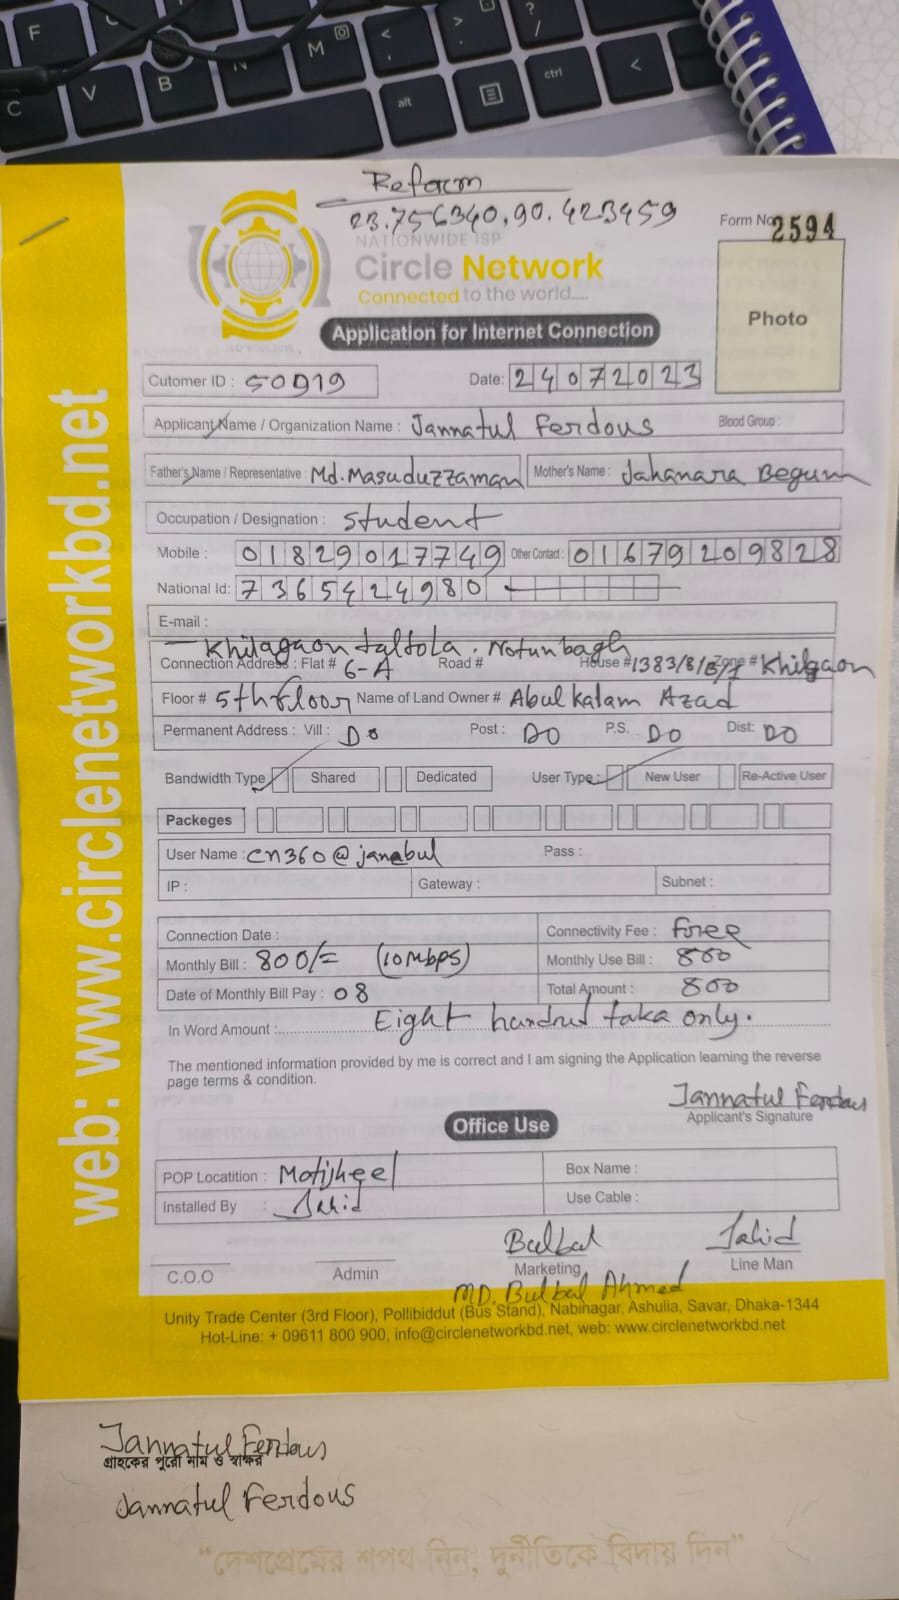 F
C V B N M < , > . ? /
alt ctrl <
Reform
23.756340,90.423459
Form No 2594
NATIONWIDE ISP
Circle Network
Connected to the world.....
Photo
Application for Internet Connection
Cutomer ID : 50919 Date: 24072023
Applicant Name / Organization Name : Jannatul Ferdous Blood Group :
Father's Name / Representative : Md.Masuduzzaman Mother's Name : Jahanara Begum
Occupation / Designation : Student
Mobile : 01829017749 Other Contact : 01679209828
National Id: 7365424980
E-mail :
Khilagaon taltola . Notunbagh
Connection Address : Flat # 6-A Road # House # 1383/8/ Zone # Khilgaon
Floor # 5th floor Name of Land Owner # Abul kalam Azad
Permanent Address : Vill : Do Post : DO P.S. DO Dist: DO
Bandwidth Type Shared Dedicated User Type: New User Re-Active User
Packeges
User Name : cn360@janabul Pass :
IP : Gateway : Subnet :
Connection Date : Connectivity Fee : free
Monthly Bill : 800/= (10Mbps) Monthly Use Bill : 800
Date of Monthly Bill Pay : 08 Total Amount : 800
In Word Amount :.......... Eight hundred taka only.
The mentioned information provided by me is correct and I am signing the Application learning the reverse
page terms & condition.
Jannatul Ferdous
Applicant's Signature
Office Use
POP Locatition : Motijheel Box Name :
Installed By : Jahid Use Cable :
Bulbul Jahid
C.O.O Admin Marketing Line Man
MD. Bulbul Ahmed
Unity Trade Center (3rd Floor), Pollibiddut (Bus Stand), Nabinagar, Ashulia, Savar, Dhaka-1344
Hot-Line: + 09611 800 900, info@circlenetworkbd.net, web: www.circlenetworkbd.net
web: www.circlenetworkbd.net
Jannatul Ferdous
গ্রাহকের পুরো নাম ও স্বাক্ষর
Jannatul Ferdous
“দেশপ্রেমের শপথ নিন, দুর্নীতিকে বিদায় দিন”